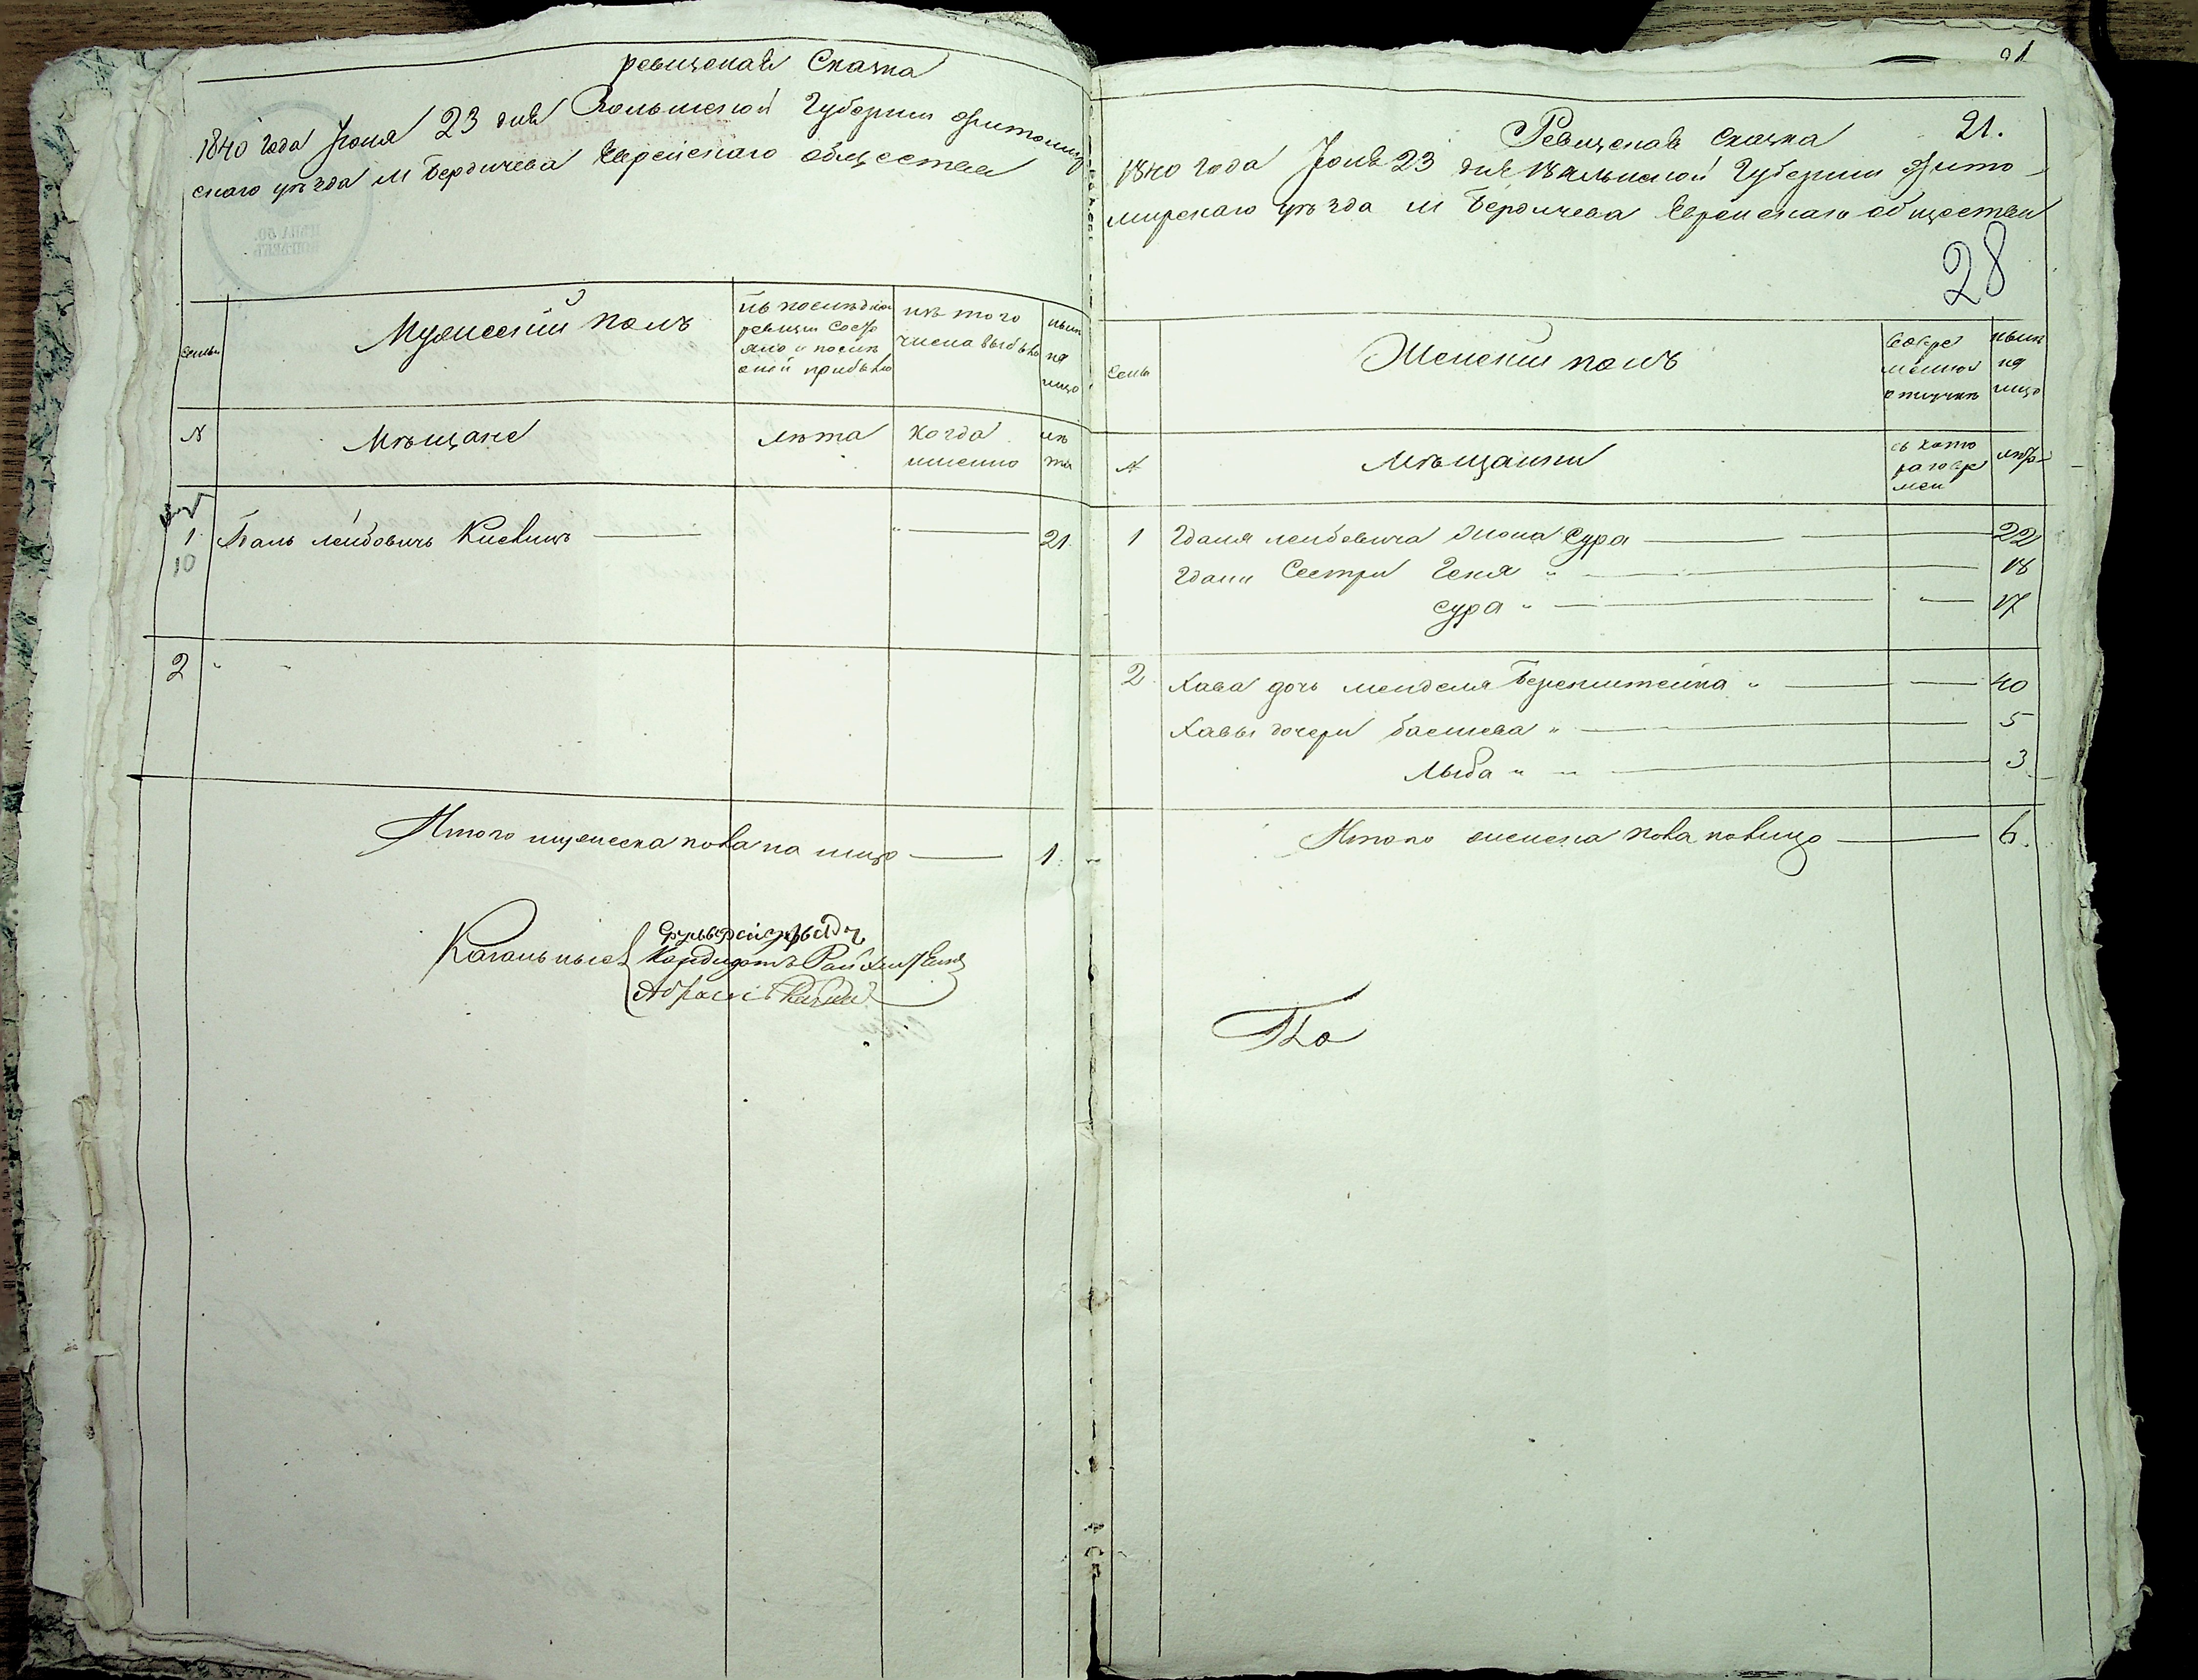 ревизская Сказка
1840 года Июня 23 дня Волынской Губернии Житомир
скаго уѣзда м Бердичева Еврейскаго общества
семьи
Мужеский полъ
въ последнюю
ревизии состо
яло и послѣ
оной прибыло
изъ того
числа выбыло
нын
на
лицо
№
Мѣщане
лѣта
когда
именно
лѣ
та
1
10
лейбовичъ Киевицъ
21
2
Итого мужеска пола на лицо 1
Кагальные
Кандидатъ
Абрам
21
Ревизская Сказка 21.
1840 года Июня 23 дня Волынской Губернии Жито
мирскаго уѣзда м Бердичева Еврейскаго общества
28
семьи
Женский полъ
во вре
менной
отлучкѣ
нын
на
лицо
№
Мѣщанки
съ кото
раго вре
мен
лѣта
1 Гдаля лейбовича жена Сура 22
Гдали Сестри Геня 18
сура 17
2 Хава дочь менделя Беренштейна 40
Хавы дочери басшева 5
Лыба 3
Итого женска пола налицо 6.
По